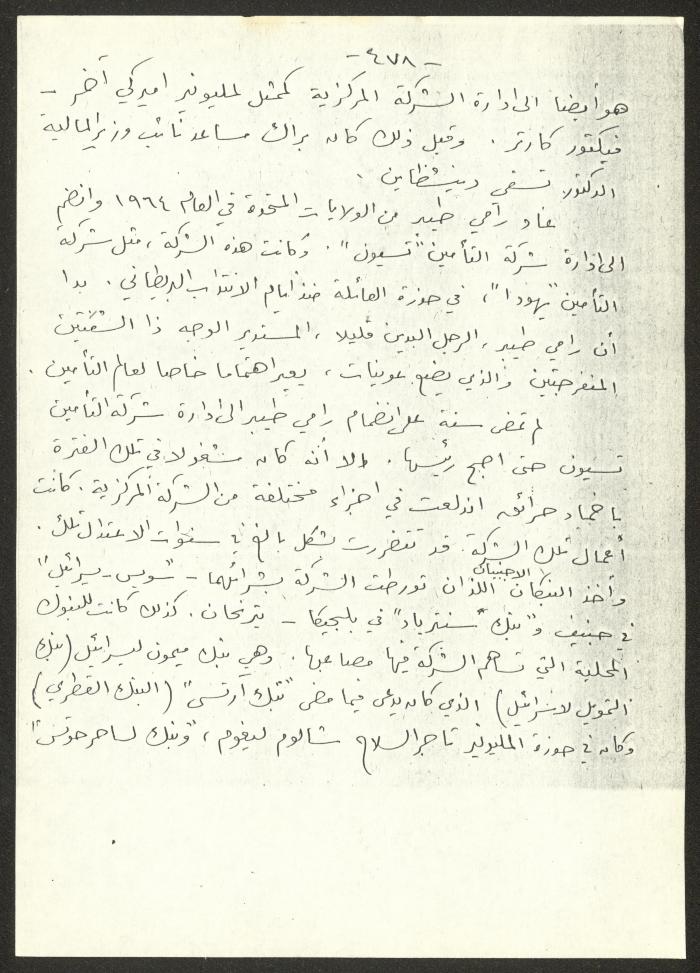 -٤٧٨-
هو أيضا الى ادارة الشركة المركزية كممثل لمليونير اميركي آخر -
فيكتور كارتر . وقبل ذلك كان براك مساعد نائب وزير المالية
الدكتور تسفي دينشطاين .
عاد رامي طيبر من الولايات المتحدة في العام ١٩٦٤ وانضم
الى ادارة شركة التأمين "تسيون" . وكانت هذه الشركة ، مثل شركة
التأمين "يهودا" ، في حوزة العائلة منذ ايام الانتداب البريطاني . بدا
أن رامي طيبر ، الرجل البدين قليلا ، المستدير الوجه ذا الشفتين
المنفرجتين والذي يضع عوينات ، يعير اهتماما خاصا لعالم التأمين .
لم تمض سنة على انضمام رامي طيبر الى ادارة شركة التأمين
تسيون حتى اصبح رئيسها . إلا أنه كان مشغولا في تلك الفترة
باخماد حرائق اندلعت في اجزاء مختلفة من الشركة المركزية . كانت
أعمال تلك الشركة قد تضررت بشكل بالغ في سنوات الاعتدال تلك .
وأخذ البنكان الاجنبيان اللذان تورطت الشركة بشرائهما - "سويس - يسرائيل"
في جنيف و"بنك سنترباد" في بلجيكا - يترنحان . كذلك كانت للبنوك
المحلية التي تساهم الشركة فيها مصاعبها . وهي بنك ميمون ليسرائيل (بنك
التمويل لاسرائيل) الذي كان يدعى فيما مضى "بنك أرتسي" (البنك القطري)
وكان في حوزة المليونير تاجر السلاح شالوم ليفوم ، "وبنك لساحر حوتس"